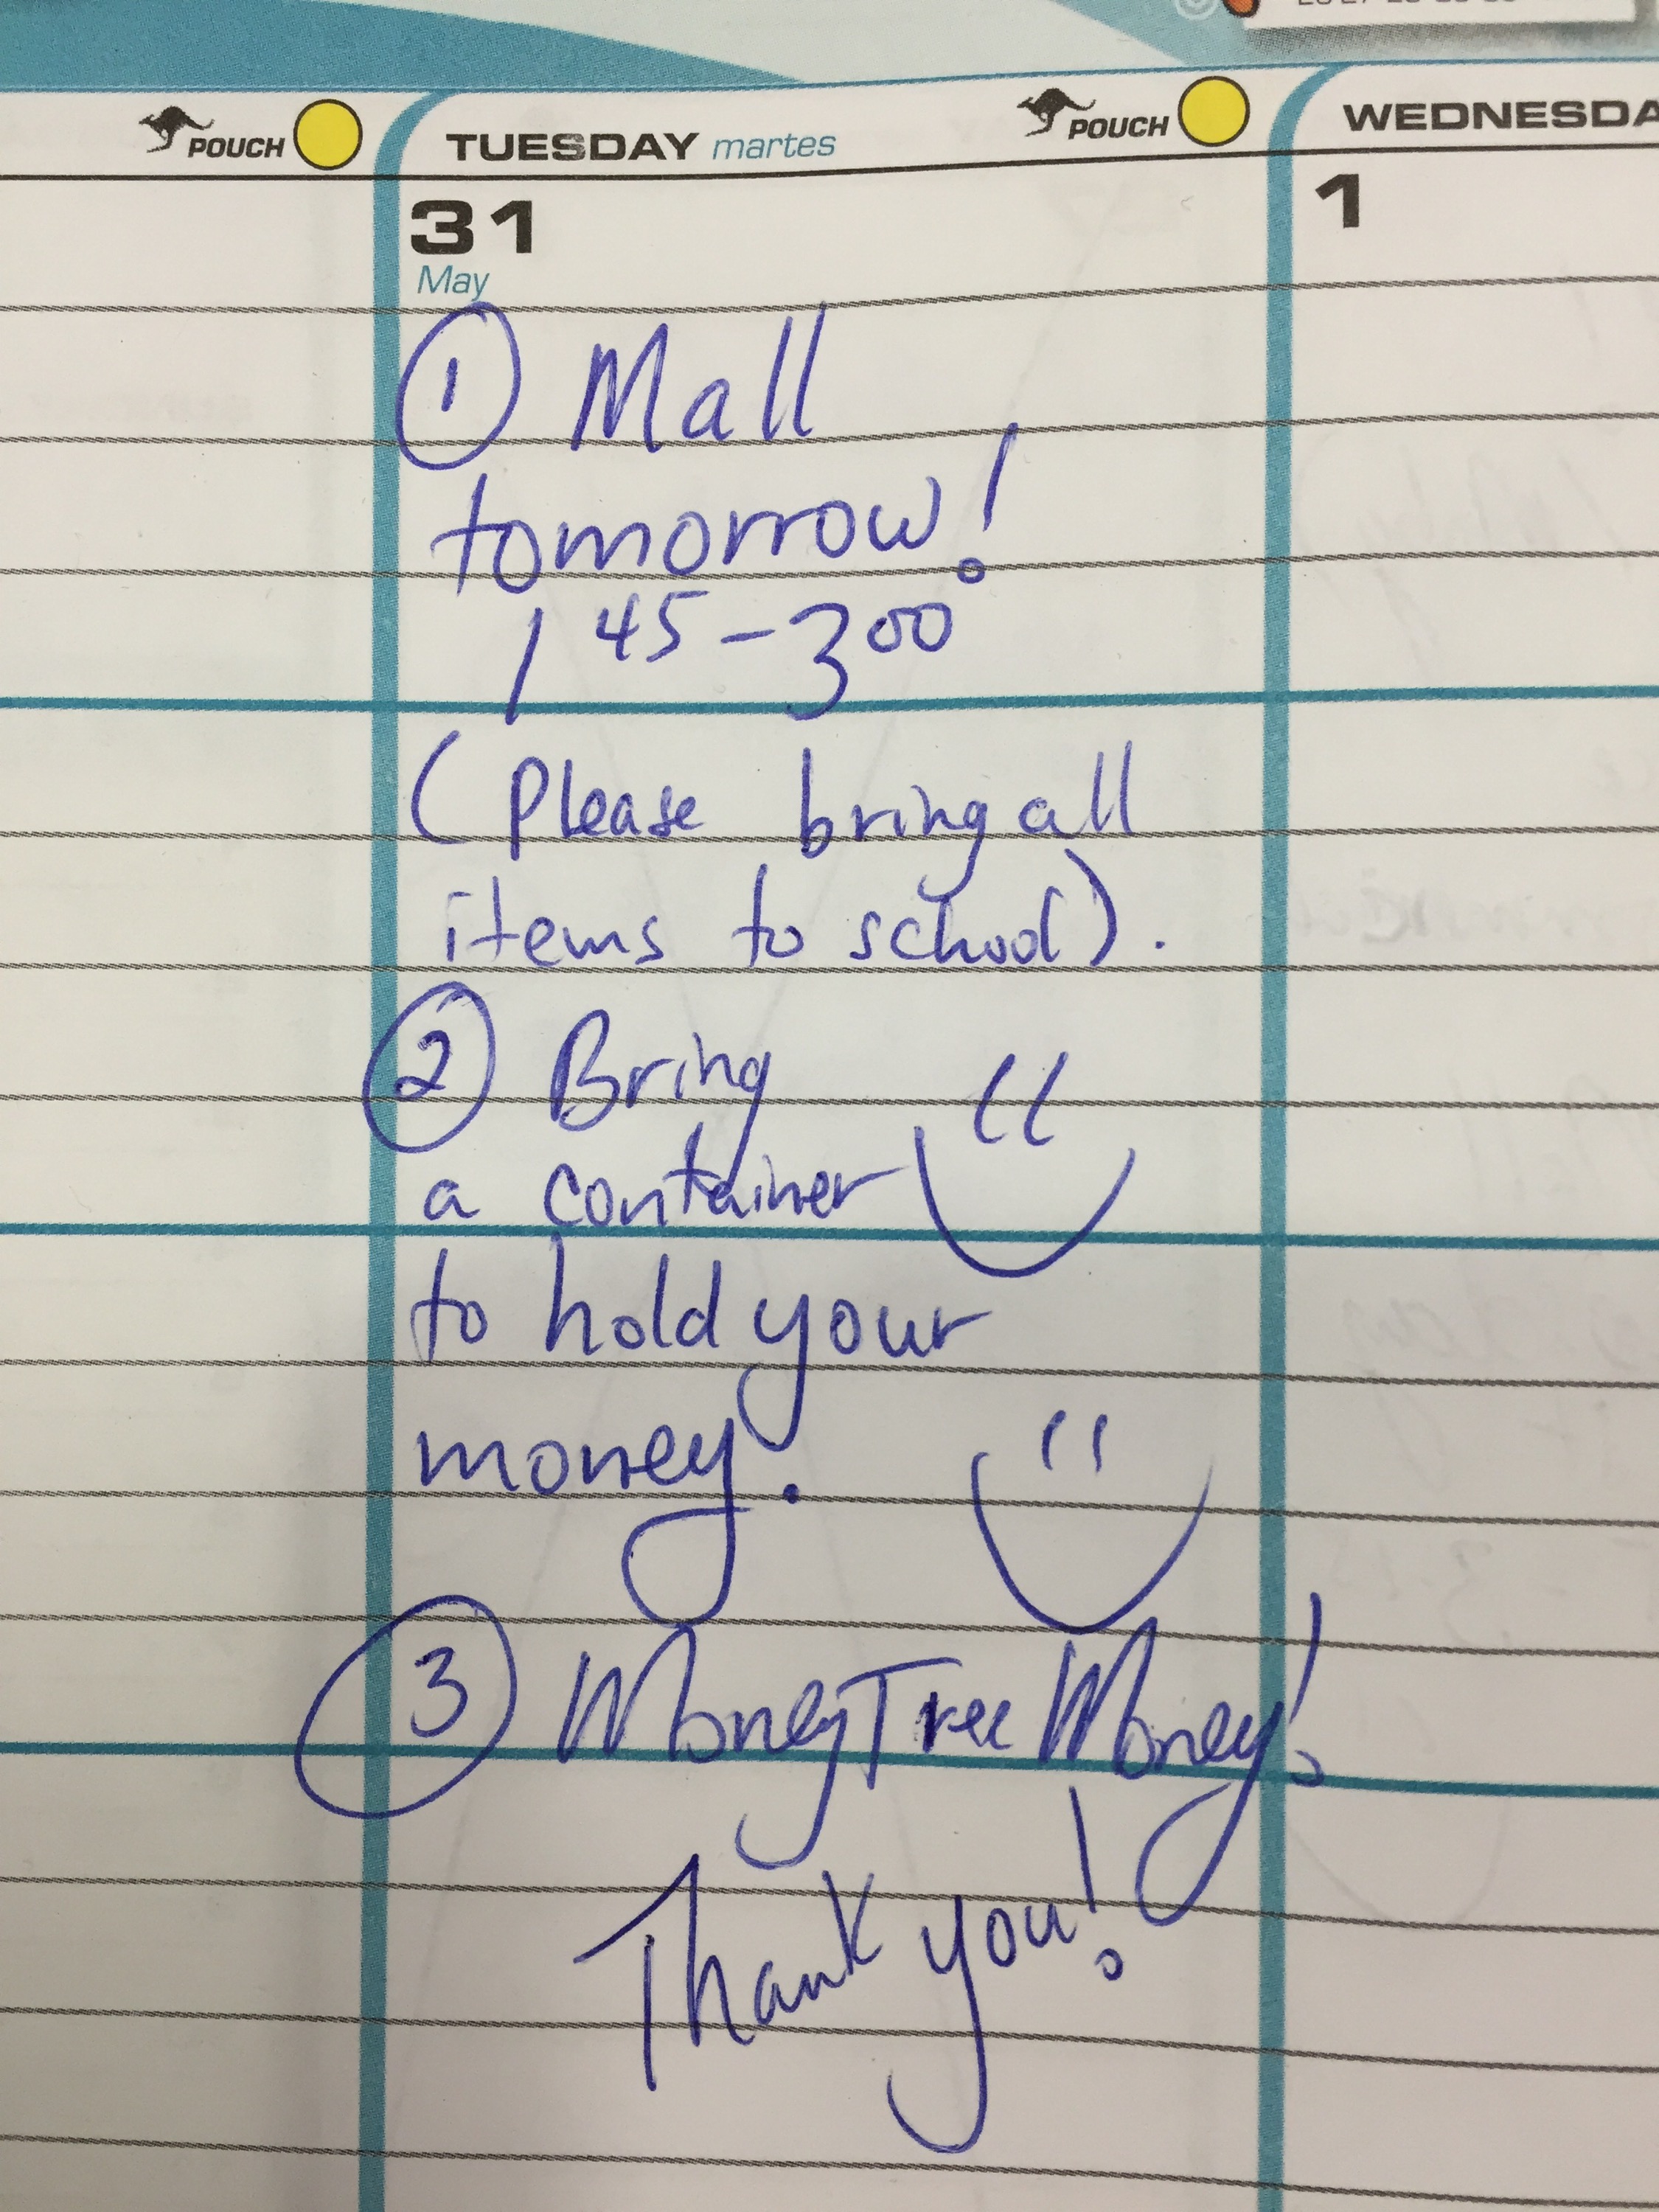 POUCH
TUESDAY martes
POUCH
WEDNESDA
31
May
1
① Mall
tomorrow!
1 45 - 3 00
(Please bring all
items to school).
② Bring
a container
to hold your
money.
③ Money Tree Money!
Thank you!